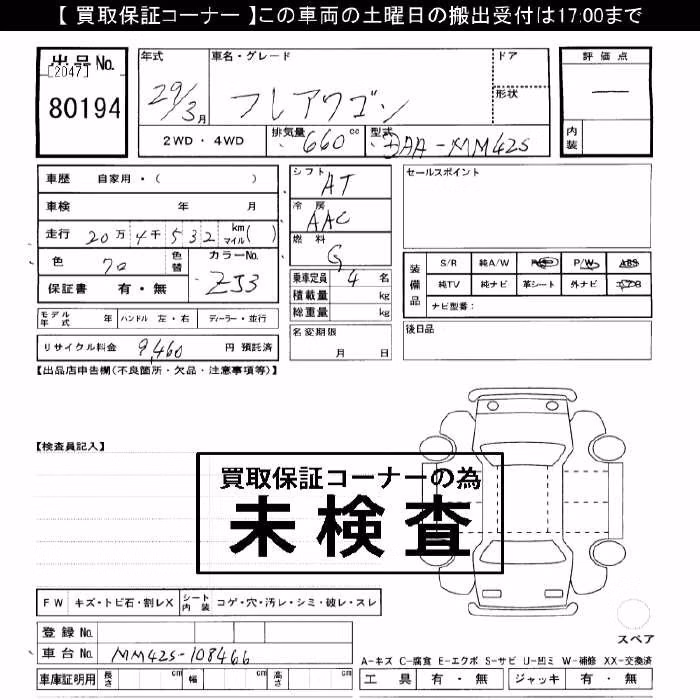 【 買取保証コーナー 】この車両の土曜日の搬出受付は17:00まで
出品No.
[2047]
80194
年式 29/3月
車名・グレード フレアワゴン
ドア
形状
評価点
―
内装
2WD・4WD 排気量 660cc 型式 DAA-MM42S
車歴 自家用・( )
車検 年 月
走行 20万 4千 532 km マイル( )
色 70 色替 カラーNo. ZJ3
保証書 有・無
シフト AT
冷房 AAC
燃料 G
乗車定員 4名
積載量 kg
総重量 kg
セールスポイント
装備品
S/R 純A/W P/S P/W ABS
純TV 純ナビ 革シート 外ナビ エアB
ナビ型番:
モデル年式 年 ハンドル 左・右 ディーラー・並行
名変期限 月 日
後日品
リサイクル料金 9,460 円 預託済
【出品店申告欄(不良箇所・欠品・注意事項等)】
【検査員記入】
買取保証コーナーの為
未検査
FW キズ・トビ石・割レX シート内装 コゲ・穴・汚レ・シミ・破レ・スレ
スペア
登録No.
車台No. MM42S-108466
車庫証明用 長さ cm 幅 cm 高さ cm
A-キズ C-腐食 E-エクボ S-サビ U-凹ミ W-補修 XX-交換済
工具 有・無 ジャッキ 有・無